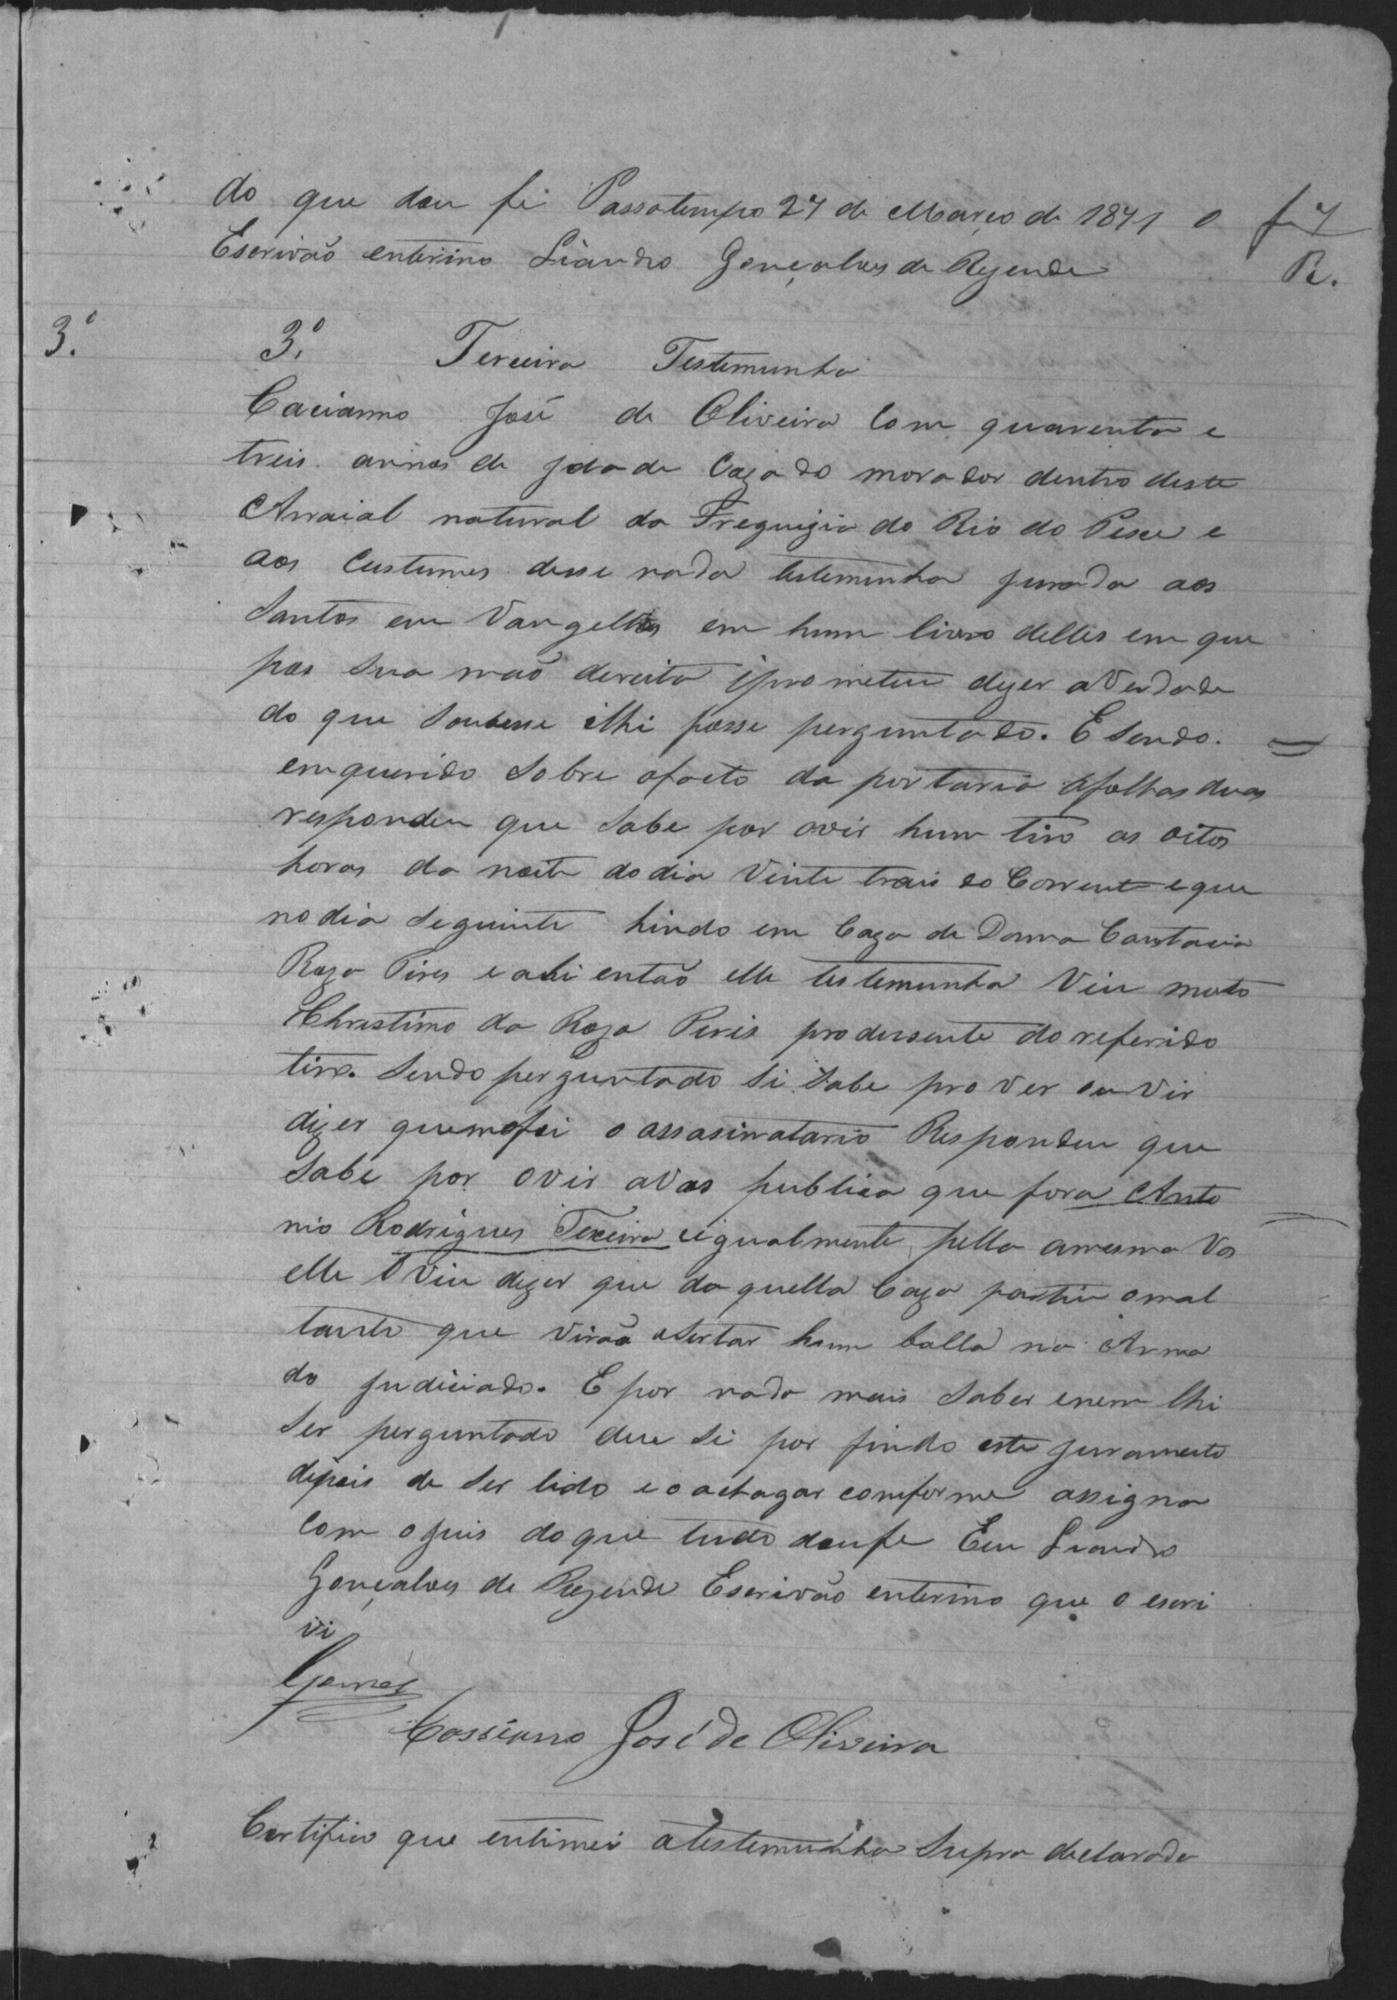 do que dou fé Passatempo 27 de Março de 1871 o
Escrivão enterino Liandro Gonçalves de Rezende
f 7
R.
3.º
3.º Terceira Testemunha
Cacianno José de Oliveira Com quarenta e
treis annos de Jdade Cazado morador dentro deste
Arraial natural da Freguizia do Rio do Pexe e
aos Custumes disse nada testemunha jurada aos
Santos em Vangelhos em hum livro delles em que
pos sua mão dereita iprometeu dizer a Verdade
do que Soubesse ilhi fosse perguntado. E Sendo.
enquerido Sobre ofacto da portaria afolhas duas
respondeu que Sabe por ovir hum tiro as oitos
horas da noite dodia Vinte trais do Corrente eque
nodia Seguinte hindo em Caza de Donna Constacia
Roza Pires eahi entaõ elle testemunha Viu morto
Christino da Roza Peris produsente do referido
tiro. Sendo perguntado Si Sabe pro Ver ou Vir
dizer quemofoi o assasinatario Respondeu que
Sabe por ovir aVos publica que fora Anto
nio Rodrigues Texeira eigualmente pella amesma Vos
elle Oviu dizer que da quella Caza partiu omal
tanto que virão asertar hum balla na Arma
do judiciado. E por nada mais Saber enem lhi
Ser perguntado deu Si por findo este juramento
depois de Ser lido eoachagar comforme assigna
Com ojuis doque tudo doufe Eeu Liandro
Gonçalves de Rezende Escrivão enterino que o escri
vi
Gomes
Cassianno José de Oliveira
Certifico que entimei atestemunha Supra declarada